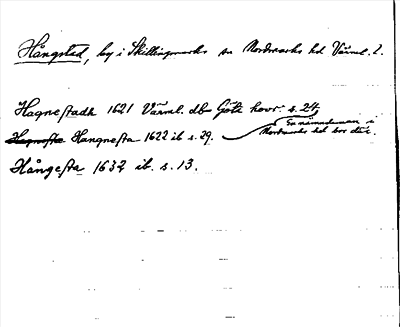 Hångstad, by i Skillingmarks sn Nordmarks hd Värml. l.
Hagnestadh 1621 Värml. db Göta hovr. s. 24.
En nämndeman i
Hagnesta Hangnesta 1622 ib s. 29.
Nordmarks hd bor där.
Hångesta 1632 ib. s. 13.